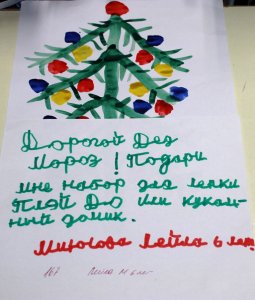 Дорогой Дед
Мороз! Подари
мне набор для лепки
Плэй До или куколь-
ный домик.
Лейла 6 лет
167